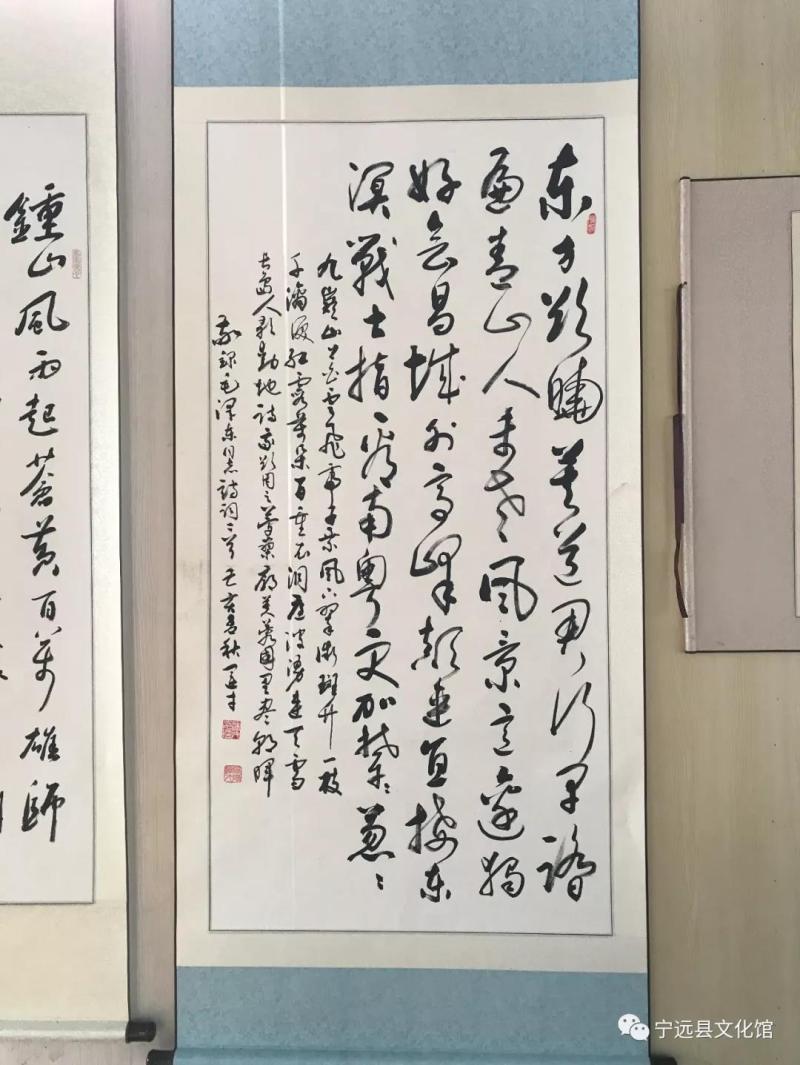 东方欲曉莫道君行早踏
遍青山人未老风景这邊独
好会昌城外高峰颠连直接东
溟戰士指、看南粤更加欝、葱、
九嶷山上白雲飛帝子乘风下翠微斑竹一枝
千滴淚红霞萬朵百重衣洞庭波涌連天雪
长岛人歌動地诗我欲因之夢寥廓芙蓉国里尽朝晖
录毛泽东同志诗词二首 秋
鍾山風雨起蒼黄百萬雄師
宁远县文化馆